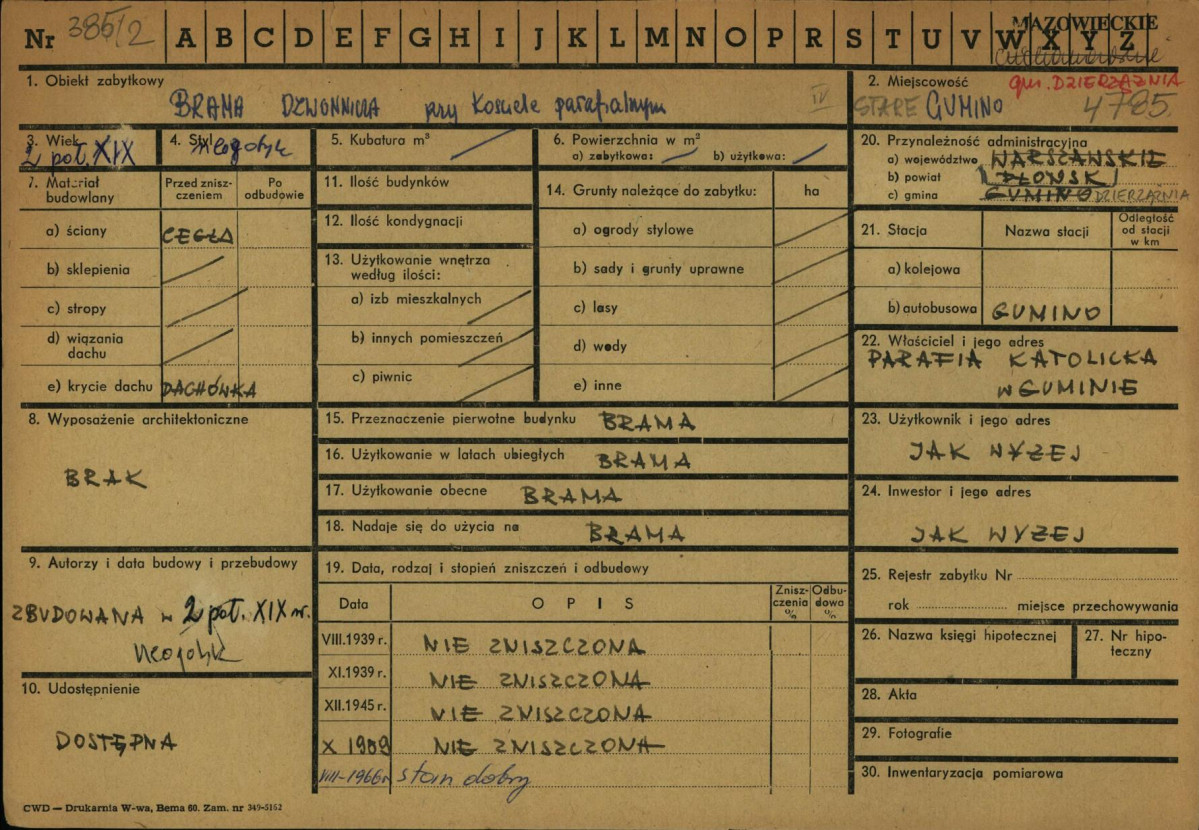 Nr 385/2 A B C D E F G H I J K L M N O P R S T U V W X Y Z
MAZOWIECKIE
1. Obiekt zabytkowy
BRAMA DZWONNICZA przy kościele parafialnym IV
2. Miejscowość gm. DZIERZĄŻNIA
STARE GUMINO 4785
3. Wiek
2 poł. XIX
4. Styl
neogotyk
5. Kubatura m³
6. Powierzchnia w m²
a) zabytkowa: b) użytkowa:
7. Materiał budowlany
Przed zniszczeniem
Po odbudowie
a) ściany CEGŁA
b) sklepienia
c) stropy
d) wiązania dachu
e) krycie dachu DACHÓWKA
8. Wyposażenie architektoniczne
BRAK
9. Autorzy i data budowy i przebudowy
ZBUDOWANA w 2 poł. XIX w.
neogotyk
10. Udostępnienie
DOSTĘPNA
11. Ilość budynków
12. Ilość kondygnacji
13. Użytkowanie wnętrza według ilości:
a) izb mieszkalnych
b) innych pomieszczeń
c) piwnic
14. Grunty należące do zabytku: ha
a) ogrody stylowe
b) sady i grunty uprawne
c) lasy
d) wody
e) inne
15. Przeznaczenie pierwotne budynku BRAMA
16. Użytkowanie w latach ubiegłych BRAMA
17. Użytkowanie obecne BRAMA
18. Nadaje się do użycia na BRAMA
19. Data, rodzaj i stopień zniszczeń i odbudowy
Data OPIS Zniszczenia % Odbudowa %
VIII.1939 r. NIE ZNISZCZONA
XI.1939 r. NIE ZNISZCZONA
XII.1945 r. NIE ZNISZCZONA
X 1959 NIE ZNISZCZONA
VIII-1966 r. stan dobry
20. Przynależność administracyjna
a) województwo WARSZAWSKIE
b) powiat PŁOŃSK
c) gmina GUMINO DZIERZĄŻNIA
21. Stacja Nazwa stacji Odległość od stacji w km
a) kolejowa
b) autobusowa GUMINO
22. Właściciel i jego adres
PARAFIA KATOLICKA
W GUMINIE
23. Użytkownik i jego adres
JAK WYŻEJ
24. Inwestor i jego adres
JAK WYŻEJ
25. Rejestr zabytku Nr
rok miejsce przechowywania
26. Nazwa księgi hipotecznej
27. Nr hipoteczny
28. Akta
29. Fotografie
30. Inwentaryzacja pomiarowa
CWD — Drukarnia W-wa, Bema 60. Zam. nr 349-5162